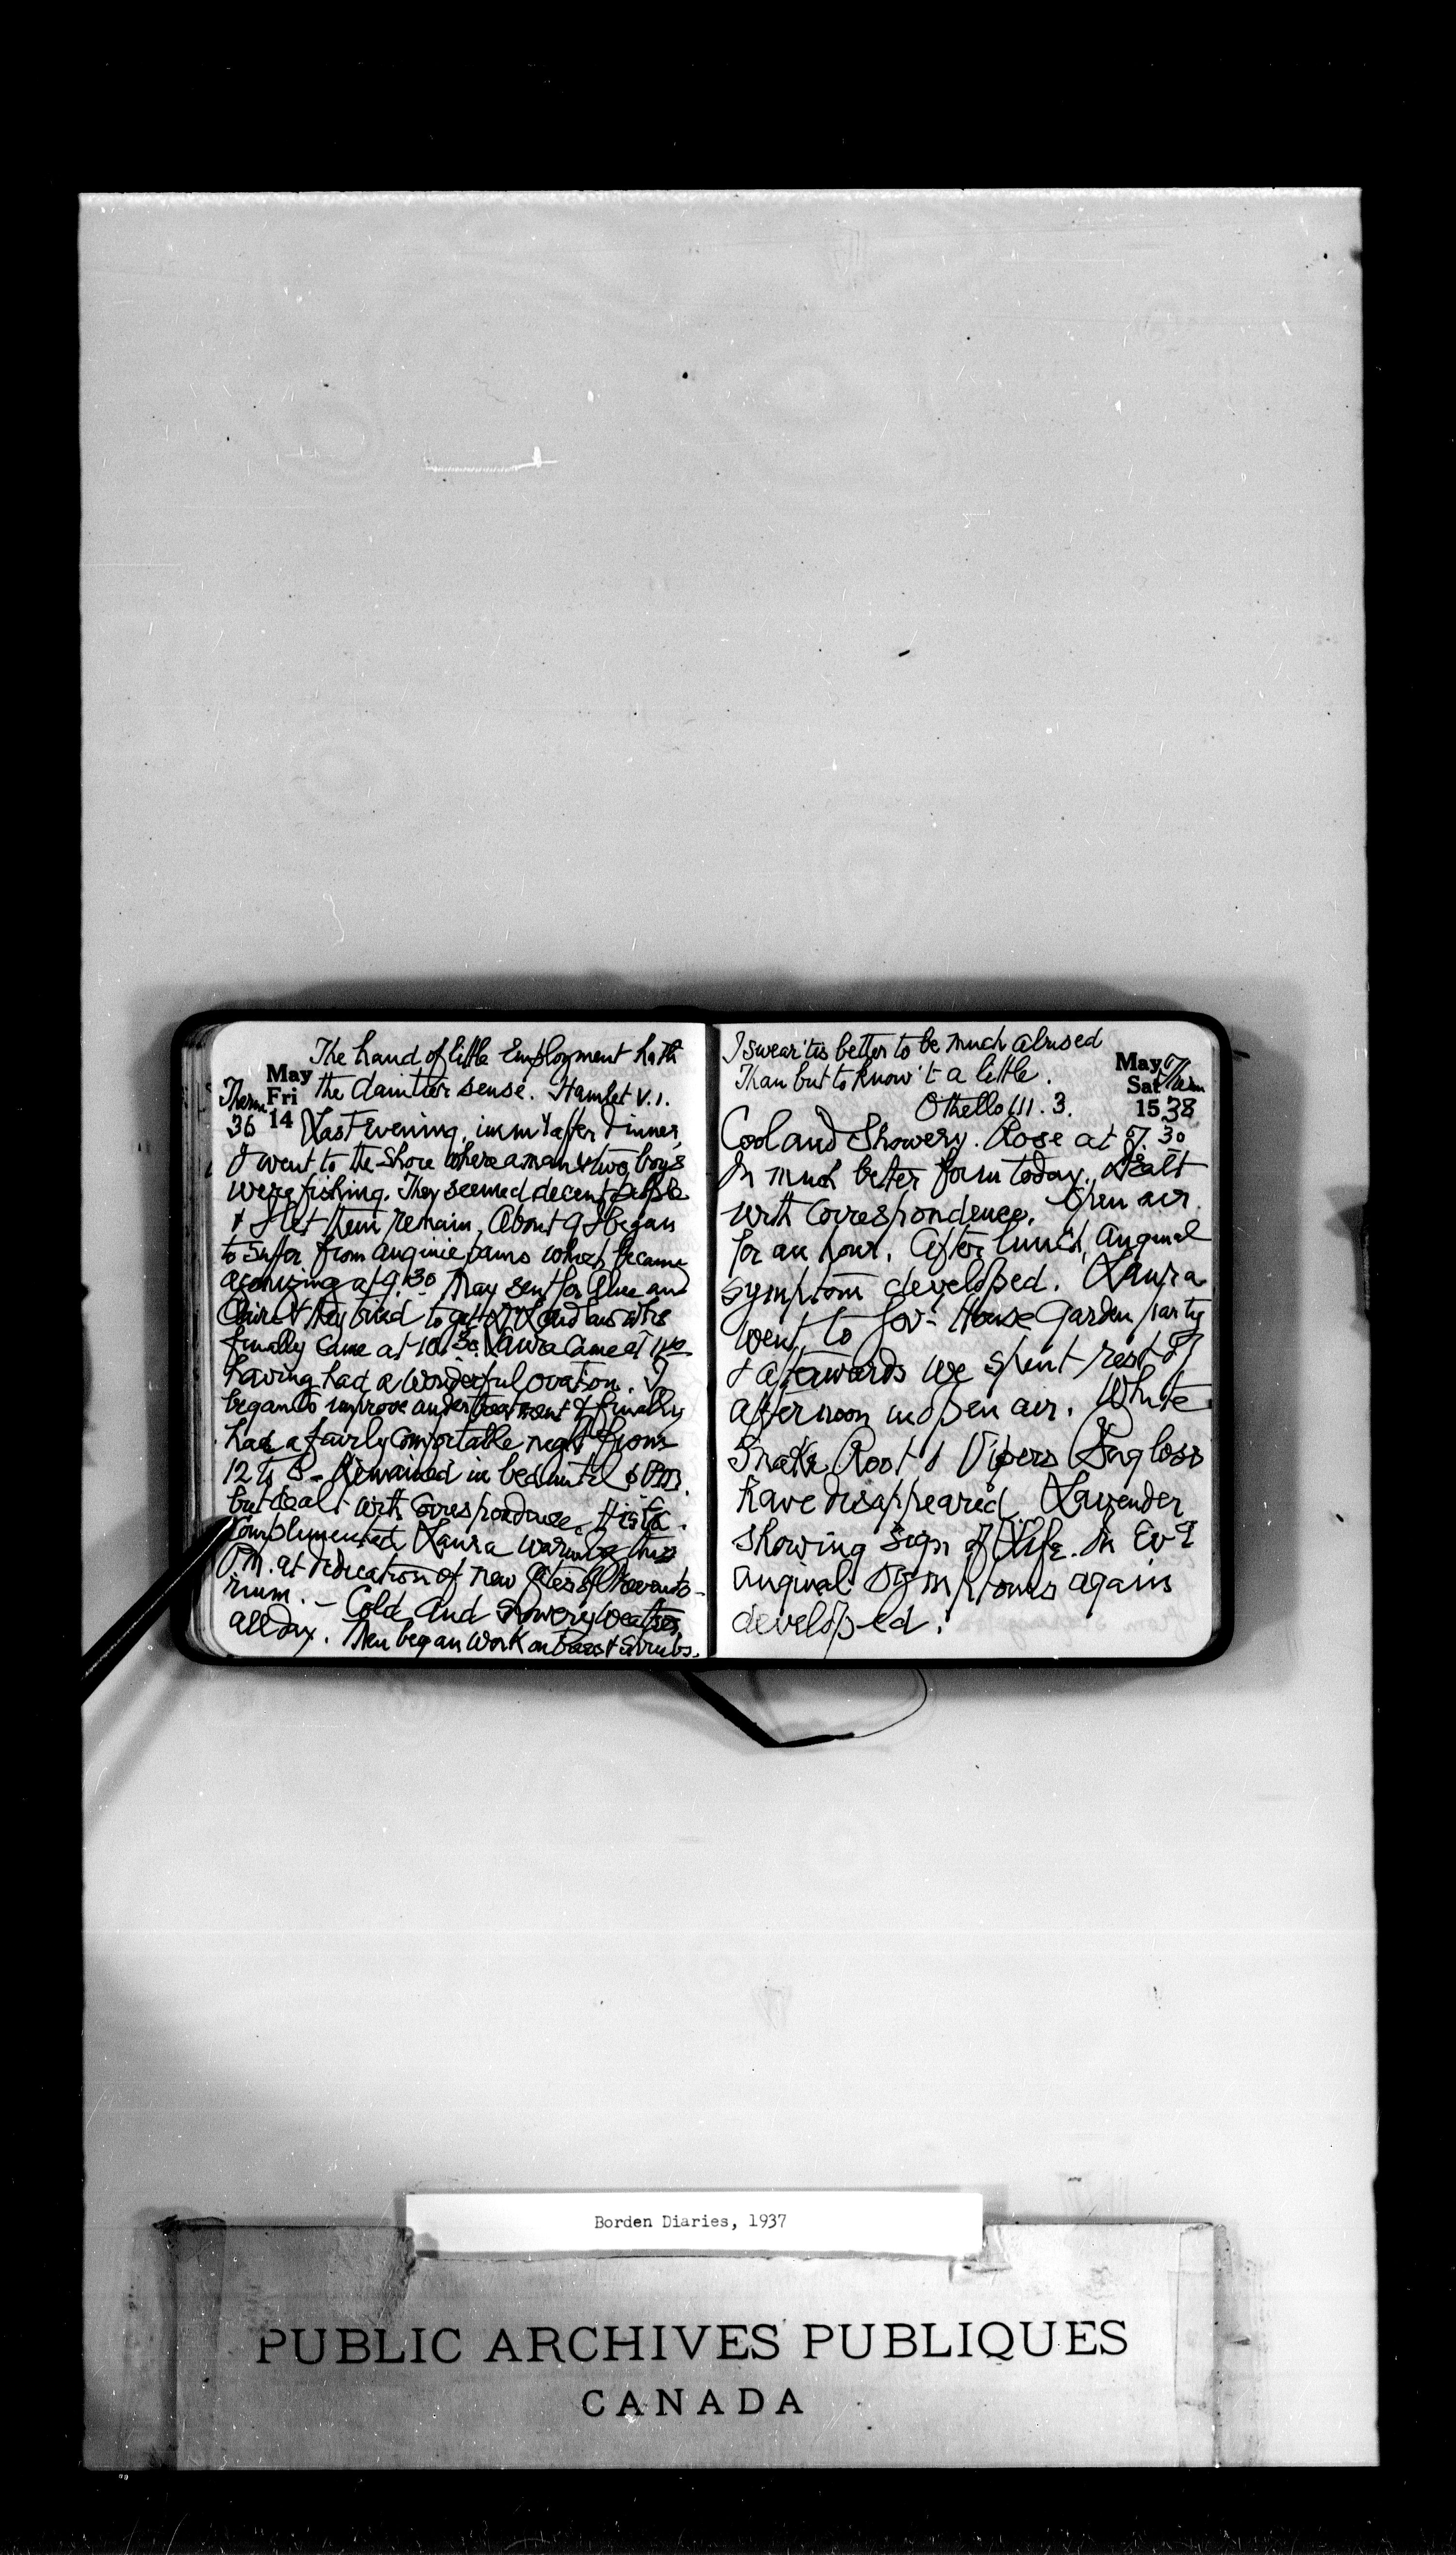 The hand of little Employment hath
May
the daintier sense. Hamlet V.1.
Therm
Fri
36
14
Last Evening, imm'y after dinner,
I went to the shore where a man & two boys
were fishing. They seemed decent people
& I let them remain. About 9 I began
to suffer from anginic pains which became
agonizing at 9.30 May sent for Alue and
Claire & they tried to get who
finally came at 10.30. Laura came at 11
having had a wonderful ovation. I
began to improve under treatment & finally
had a fairly comfortable night from
12 to 8 - Remained in bed until 6 P.M.
but dealt with correspondence. His Ex.
complimented Laura this
P.M. at dedication of new
rium. - Cold and showery weather
all day. Men began work on Trees & Shrubs.
I swear 'tis better to be much abused
Than but to know 't a little.
Othello III. 3.
May
Therm
Sat
15
38
Cool and Showery. Rose at 8.30
In much better form today. Dealt
with correspondence. Open air
for an hour. After lunch, anginal
symptom developed. Laura
went to Gov- House Garden party
& afterwards we spent rest of
afternoon in open air. White
Snake Root & Vipers Bugloss
have disappeared. Lavender
showing sign of life. In Ev'g
anginal symptoms again
developed.
Borden Diaries, 1937
PUBLIC ARCHIVES PUBLIQUES
CANADA